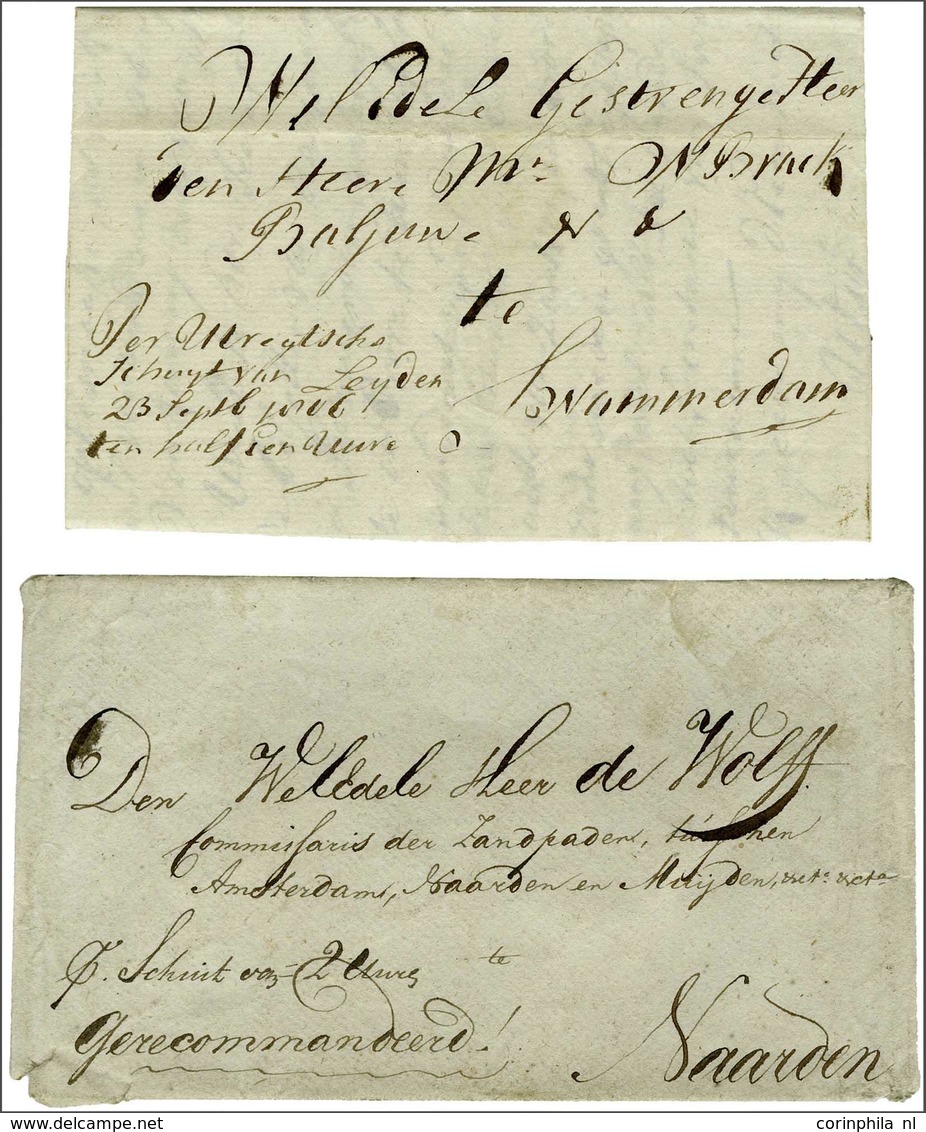 WelEdele Gestrenge Heer
den Heere Mr. N Brack
Baljuw & &
te
Per Utregtsche
Schuyt van Leyden
23 Septb 1806
ten half tien Uure
Swammerdam
Den WelEdele Heer de Wolff
Commissaris der Zandpaden, tusschen
Amsterdam, Naarden en Muijden, &cta &cta
te
P. Schuit van 2 Uure
Gerecommandeerd!
Naarden
www.delcampe.net
corinphila nl